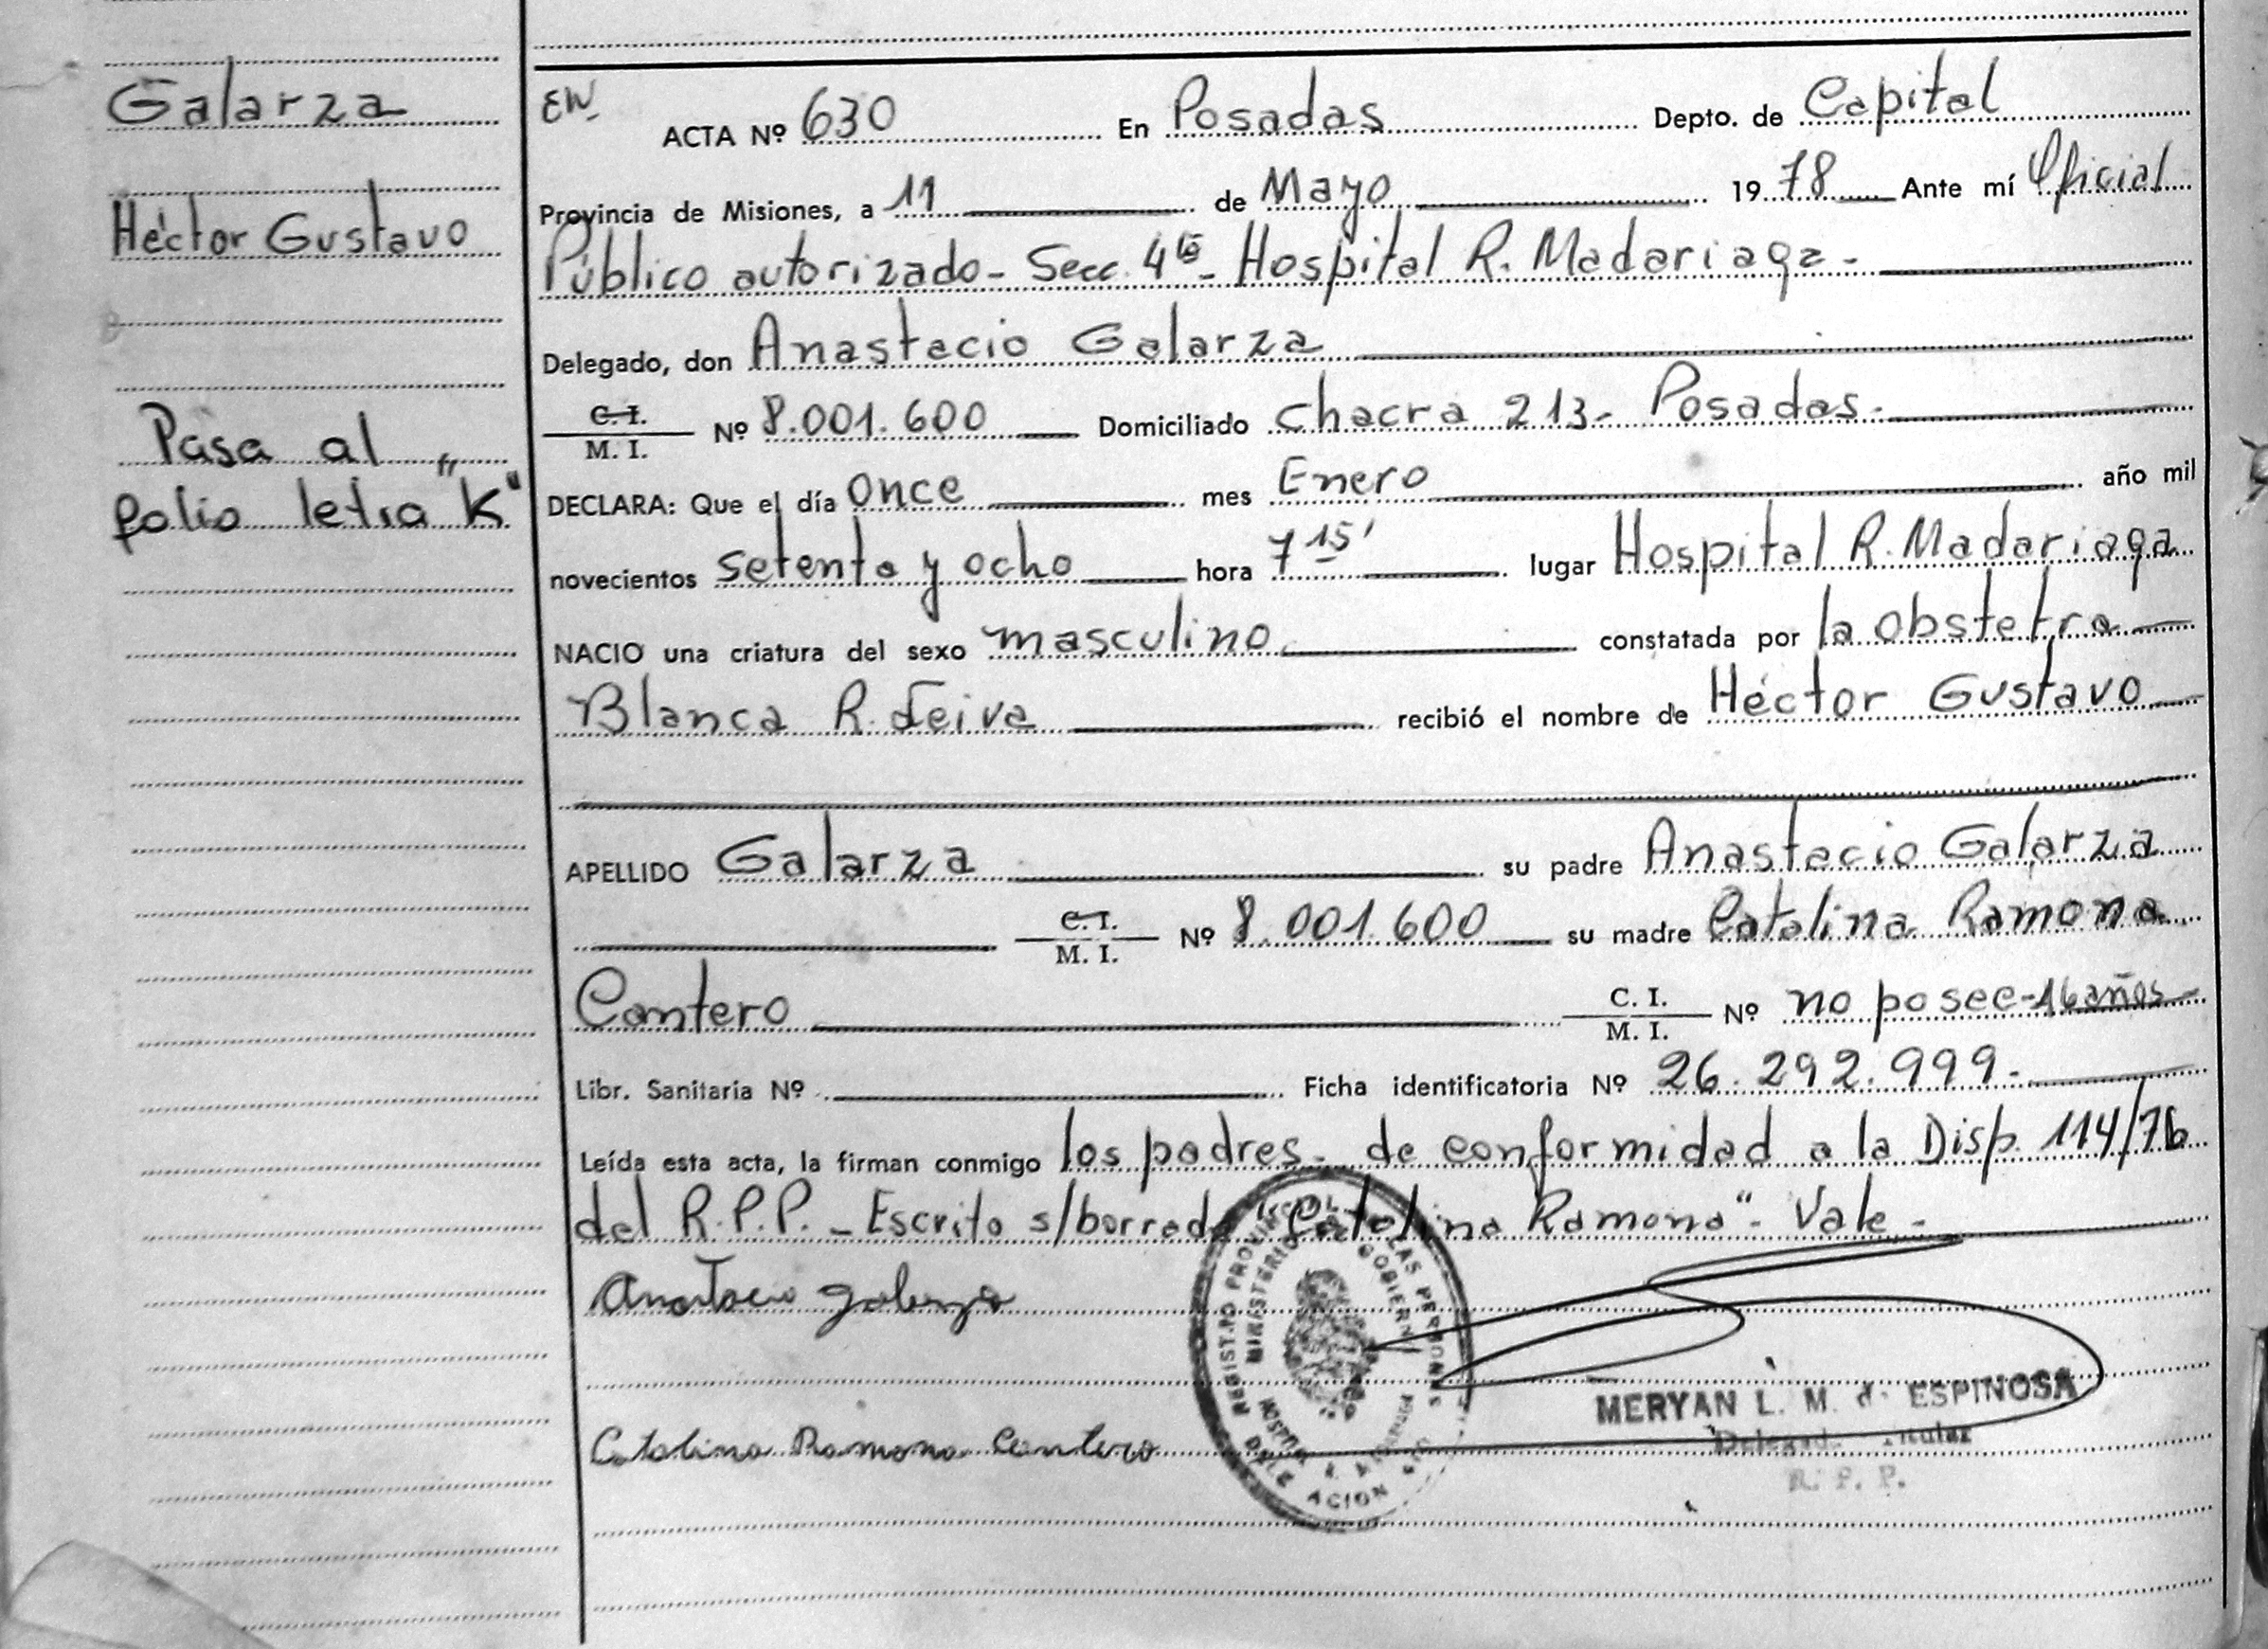 Galarza
Héctor Gustavo
Pasa al
folio letra "K"
EW
ACTA Nº 630 En Posadas Depto. de Capital
Provincia de Misiones, a 11 de Mayo 1978 Ante mí Oficial
Público autorizado - Secc. 4ta - Hospital R. Madariaga -
Delegado, don Anastacio Galarza
C. I. / M. I. Nº 8.001.600 Domiciliado Chacra 213 - Posadas.
DECLARA: Que el día Once mes Enero año mil
novecientos setenta y ocho hora 7 15' lugar Hospital R. Madariaga
NACIO una criatura del sexo masculino constatada por la obstetra
Blanca R. Leiva recibió el nombre de Héctor Gustavo
APELLIDO Galarza su padre Anastacio Galarza
C. I. / M. I. Nº 8.001.600 su madre Catalina Ramona
Cantero C. I. / M. I. Nº no posee - 16 años
Libr. Sanitaria Nº Ficha identificatoria Nº 26.292.999.-
Leída esta acta, la firman conmigo los padres - de conformidad a la Disp. 114/76
del R.P.P. - Escrito s/borrado "Catalina Ramona" - Vale -
Anastacio Galarza
Catalina Ramona Cantero
REGISTRO PROVINCIAL DE LAS PERSONAS
MINISTERIO DE GOBIERNO
DELEGACION
MERYAN L. M. de ESPINOSA
Delegada Titular
R. P. P.